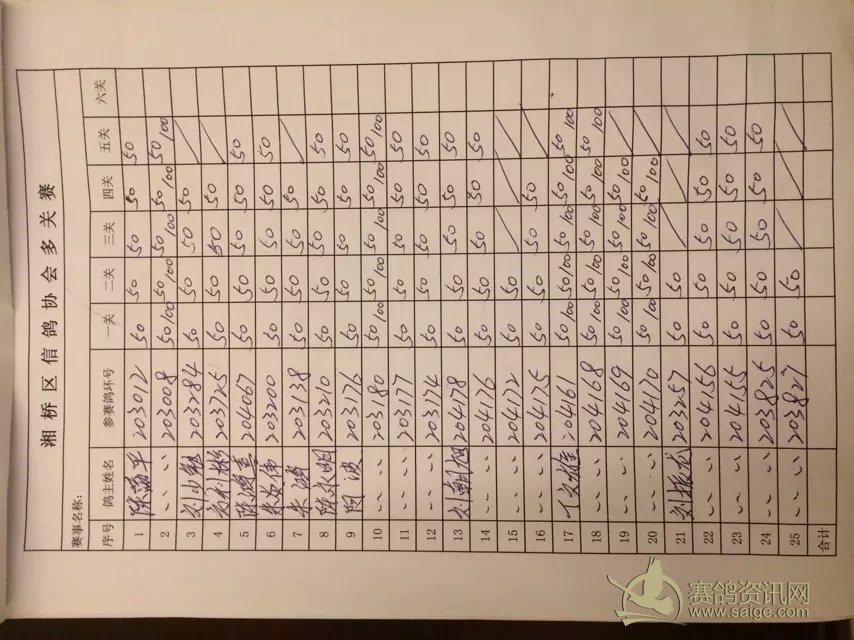 湘桥区信鸽协会多关赛
赛事名称:
序号 鸽主姓名 参赛鸽环号 一关 二关 三关 四关 五关 六关
1 203012 50 50 50 50 50
2 〃 〃 203008 50 100 50 100 50 100 50 100 50 100
3 203284 50 50 50 50
4 203725 50 50 50 50
5 204067 50 50 50 50 50
6 203200 50 50 50 50 50
7 朱 203138 50 50 50 50
8 陈永明 203210 50 50 50 50 50
9 203176 50 50 50 50 50
10 〃 〃 203180 50 100 50 100 50 100 50 100 50 100
11 〃 〃 203177 50 50 50 50 50
12 〃 〃 203174 50 50 50 50 50
13 204178 50 50 50 50 50
14 〃 〃 204176 50 50 50 50 50
15 〃 〃 204172 50 50
16 〃 〃 204175 50 50 50 50
17 204161 50 100 50 100 50 100 50 100 50 100
18 〃 〃 204168 50 100 50 100 50 100 50 100 50 100
19 〃 〃 204169 50 100 50 100 50 100 50 100
20 〃 〃 204170 50 100 50 100 50 100 50 100
21 刘振龙 203257 50 50
22 〃 〃 204156 50 50 50 50 50
23 〃 〃 204155 50 50 50 50 50
24 〃 〃 203825 50 50 50 50 50
25 〃 〃 203827 50 50
合计
赛鸽资讯网
www.saige.com